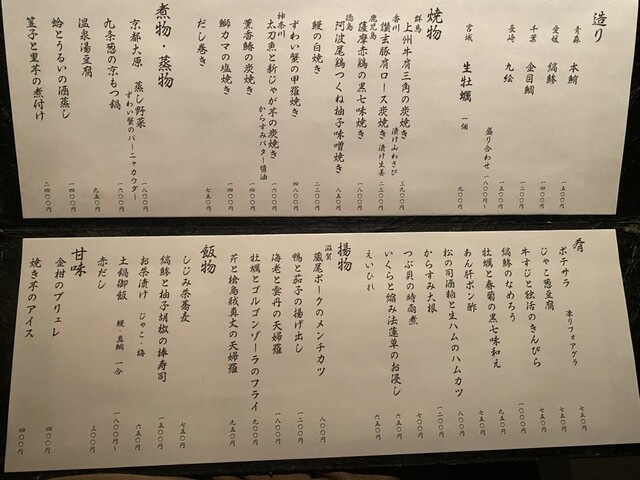 造り
青森 本鮪 一五〇〇円
愛媛 縞鯵 一四〇〇円
千葉 金目鯛 一二〇〇円
長崎 九絵
盛り合わせ 一八〇〇円〜
宮城 生牡蠣 一個
焼物
群馬 上州牛肩三角の炭焼き 漬け山わさび
香川 讃玄豚肩ロース炭焼き 漬け生姜
鹿児島 薩摩赤鶏の黒七味焼き
徳島 阿波尾鶏つくね柚子味噌焼き
鰻の白焼き
ずわい蟹の甲羅焼き
神奈川 太刀魚と新じゃが芋の炭焼き からすみバター醤油
薫香鰆の炭焼き 一四〇〇円
鰤カマの塩焼き 一四〇〇円
だし巻き 七五〇円
煮物・蒸物
京都大原 蒸し野菜 ずわい蟹のバーニャカウダー 一八〇〇円
九条葱の京もつ鍋 一六〇〇円
温泉湯豆腐 九五〇円
蛤とうるいの酒蒸し 一四〇〇円
筍子と里芋の煮付け 二四〇〇円
肴
ポテサラ 凍りフォアグラ 七五〇円
じゃこ葱豆腐 七五〇円
牛すじと独活のきんぴら
縞鯵のなめろう
牡蠣と春菊の黒七味和え
あん肝ポン酢
松の司酒粕と生ハムのハムカツ 八〇〇円
からすみ大根 一二〇〇円
つぶ貝の時雨煮 七〇〇円
いくらと縮み法蓮草のお浸し
えいひれ 六五〇円
揚物
滋賀 蔵尾ポークのメンチカツ 八〇〇円
鴨と茄子の揚げ出し 一二〇〇円
海老と雲丹の天婦羅
牡蠣とゴルゴンゾーラのフライ
芹と槍烏賊真丈の天婦羅 九五〇円
飯物
しじみ茶蕎麦 七五〇円
縞鯵と柚子胡椒の棒寿司
お茶漬け じゃこ・梅 六五〇円
土鍋御飯 鰻・真鯛 一合 一八〇〇円〜
赤だし 三〇〇円
甘味
金柑のブリュレ 四〇〇円
焼き芋のアイス 四〇〇円